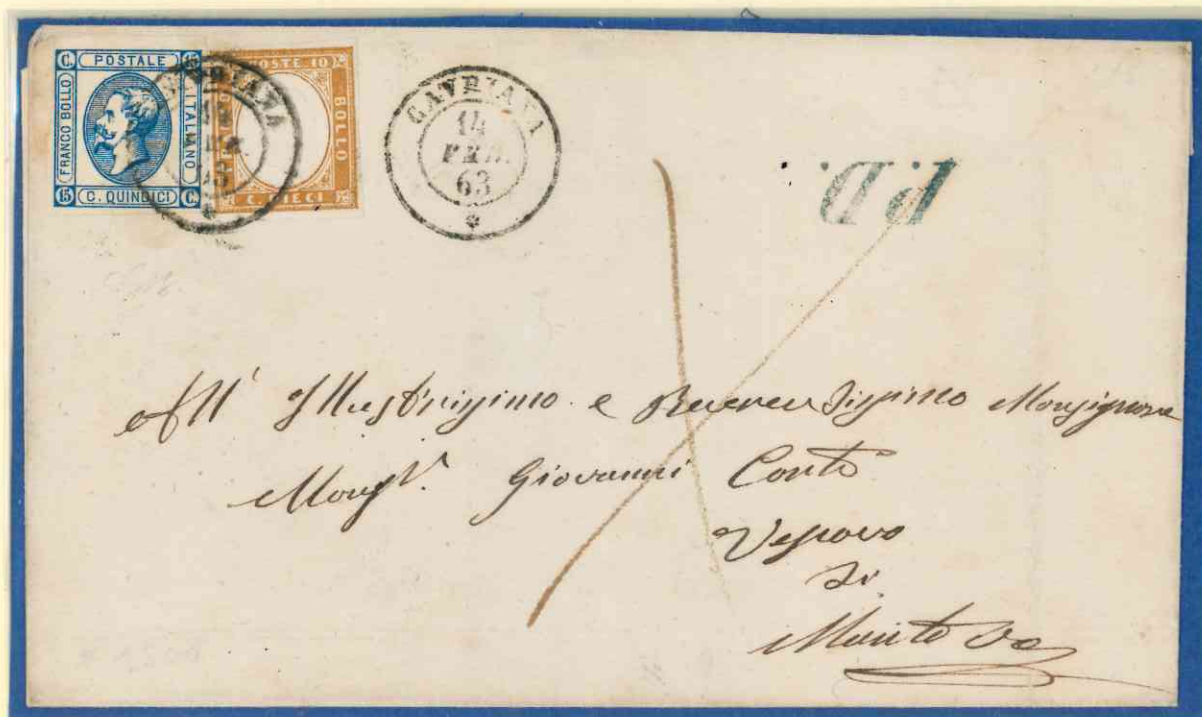 C. POSTALE 15
FRANCO BOLLO
ITALIANO
15 C. QUINDICI C.
POSTE 10
BOLLO
C. DIECI
CAVRIANA
14
FEB.
63
CAVRIANA
14
FEB.
63
P.D.
All' Illustrissimo e Reverendissimo Monsignore
Monsr. Giovanni Conte
Vescovo
di
Mantova